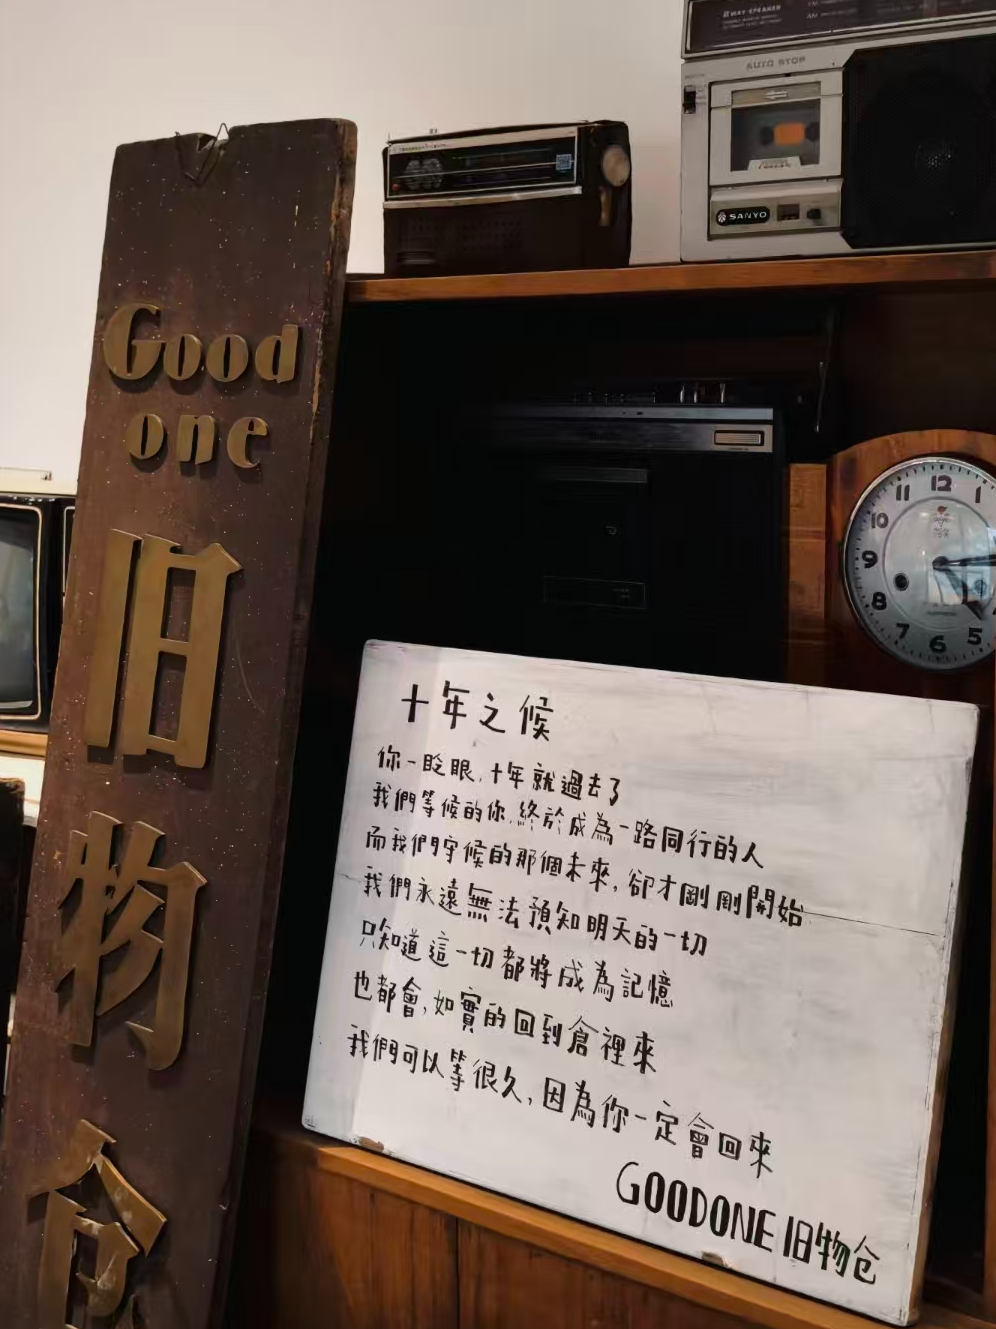 2 WAY SPEAKER
AUTO STOP
SANYO
Good
one
旧
物
仓
11 12 1
10
9
8
7 6 5
十年之候
你一眨眼,十年就過去了
我們等候的你,終於成為一路同行的人
而我們守候的那個未來,卻才剛剛開始
我們永遠無法預知明天的一切
只知道這一切都將成為記憶
也都會,如實的回到倉裡來
我們可以等很久,因為你一定會回來
GOODONE旧物仓